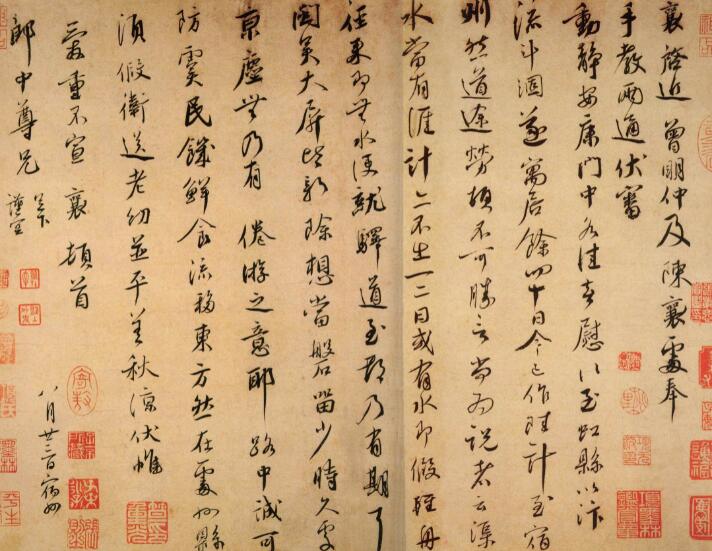 襄啓近 曾明仲及陳襄處奉
手教兩通伏審
動靜安康門中各佳喜慰以至虹縣以汴
流斗涸遂寓居餘四十日今已作陸計至宿
州然道途勞頓不可勝言尚為說者云渠
水當有涯計亦不出一二日或有水即假輕舟
徑來即無水便就驛道至都乃有期耳
閩吳大屏皆新除想當磐留少時久處
京塵無乃有 倦游之意耶路中誠可
防虞民饑鮮食流移東方然在處州縣
須假衛送老幼並平善秋涼伏惟
愛重不宣 襄頓首
郎中尊兄 足下
謹空
八月廿三日宿州